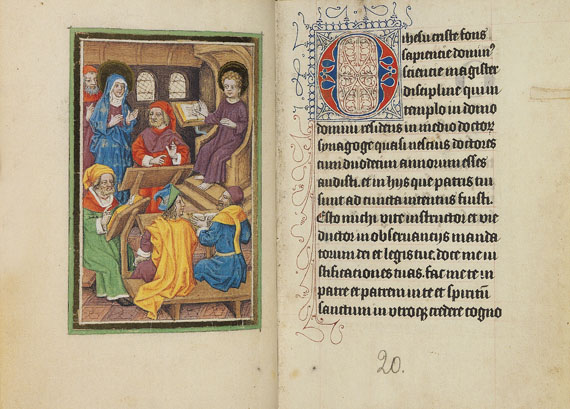 O ihesu criste fons
sapiencie domin⁹
sciencie magister
discipline qui in
templo in domo
domini residens in medio doctor
synagoge quasi nescius doctores
cum duodecim annorum esses
audisti. et in hijs que patris tui
sunt ad cuncta intentus fuisti.
Esto michi vite instructor et vie
ductor in observancijs manda
torum dei et legis tue. doce me iu
stificaciones tuas. fac me te in
patre et patrem in te et spiritū
sanctum in vtroqꝫ credere cogno
20.